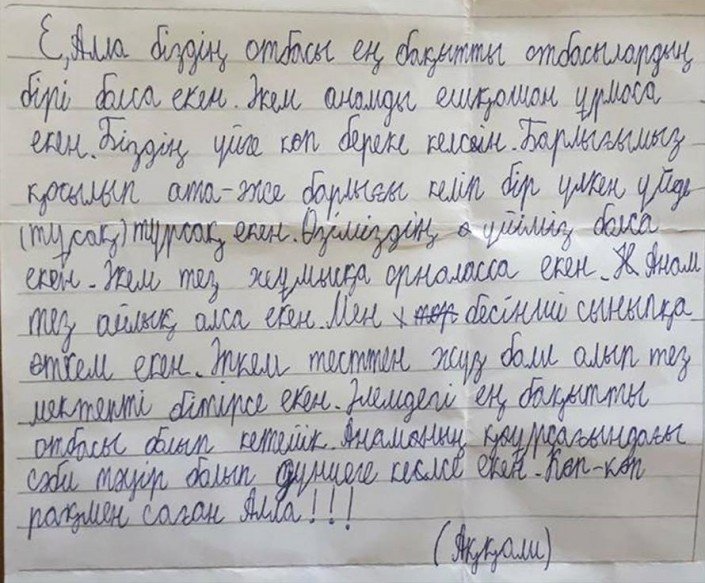 Е, Алла біздің отбасы ең бақытты отбасылардың
бірі болса екен. Әкем анамды ешқашан ұрмаса
екен. Біздің үйге көп береке келсін. Барлығымыз
қосылып ата-әже барлығы келіп бір үлкен үйде
(тұсақ) тұрсақ екен. Өзіміздің үйіміз болса
екен. Әкем тез жұмысқа орналасса екен. Анам
тез айлық алса екен. Мен бесінші сыныпқа
өткем екен. Әпкем тесттен жүз балл алып тез
мектепті бітірсе екен. Әлемдегі ең бақытты
отбасы болып кетейік. Анамның құрсағындағы
сәби тәуір болып дүниеге келсе екен. Көп-көп
рақмет саған Алла!!!
(Аққали)